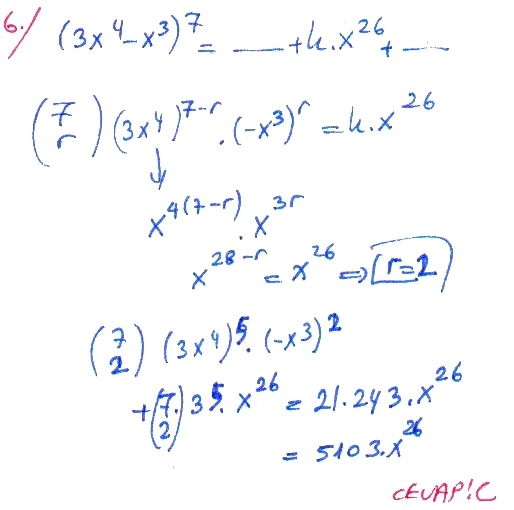 6./ (3x⁴-x³)⁷ = __ + k.x²⁶ + __
(7 r) (3x⁴)⁷⁻ʳ . (-x³)ʳ = k.x²⁶
↓
x⁴⁽⁷⁻ʳ⁾ . x³ʳ
x²⁸⁻ʳ = x²⁶ ⇒ r=2
(7 2) (3x⁴)⁵. (-x³)²
+(7. 2) 3⁵. x²⁶ = 21.243.x²⁶
= 5103.x²⁶
CEVAP!C